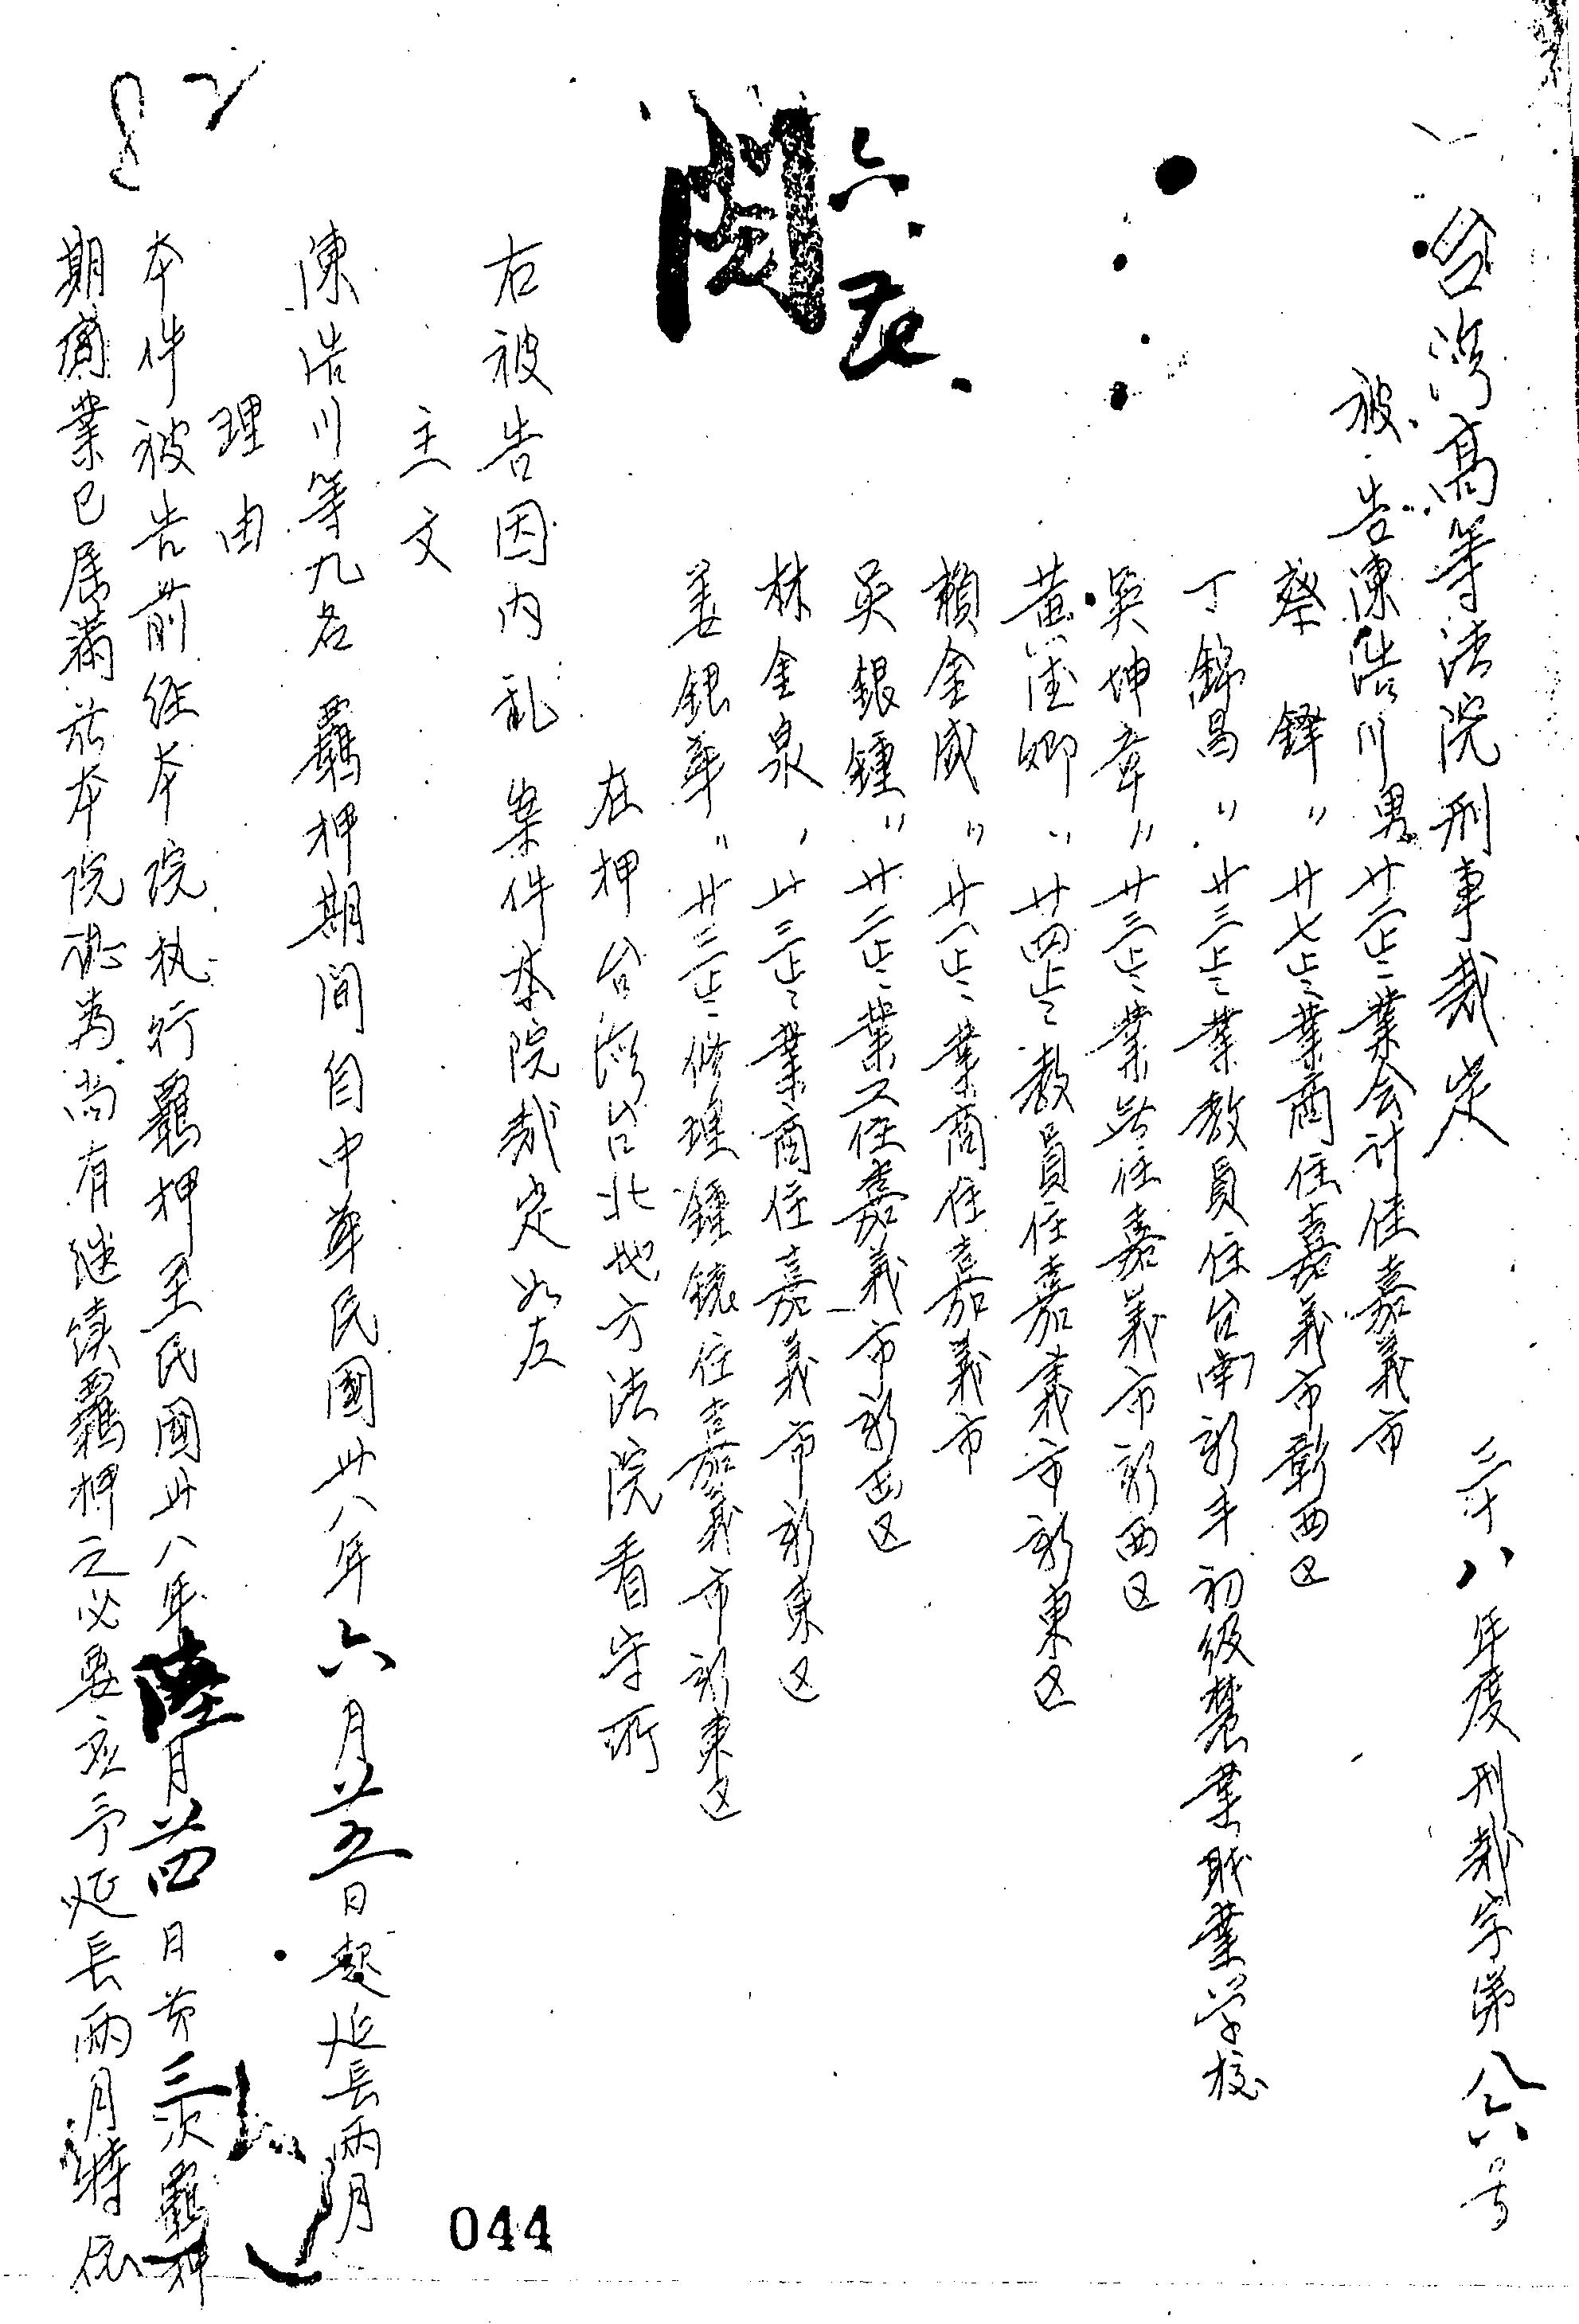 台灣高等法院刑事裁定
三十八年度刑裁字第八六号
被告陳浩川男廿二歲業会计住嘉義市
蔡鐸〃廿七歲業商住嘉義市彰西区
丁錦昌〃廿三歲業教員住台南新丰初級農業职業学校
吳坤章〃廿三歲業 住嘉義市新西区
黃 卿〃廿四歲教員住嘉義市新東区
賴金成〃廿一歲業商住嘉義市
吳銀鍾〃廿二歲業工住嘉義市新西区
林金泉〃廿三歲業商住嘉義市新東区
姜銀華〃廿三歲修理鐘錶住嘉義市新東区
在押台灣台北地方法院看守所
六
閱
右被告因内乱案件本院裁定如左
主文
陳浩川等九名羈押期間自中華民國卅八年六月廿五日起延長兩月
理由
本件被告前经本院执行羈押至民國卅八年陸月廿四日第三次羈押
期間業已届滿茲本院認為尚有继续羈押之必要应予延長兩月特依
82
044